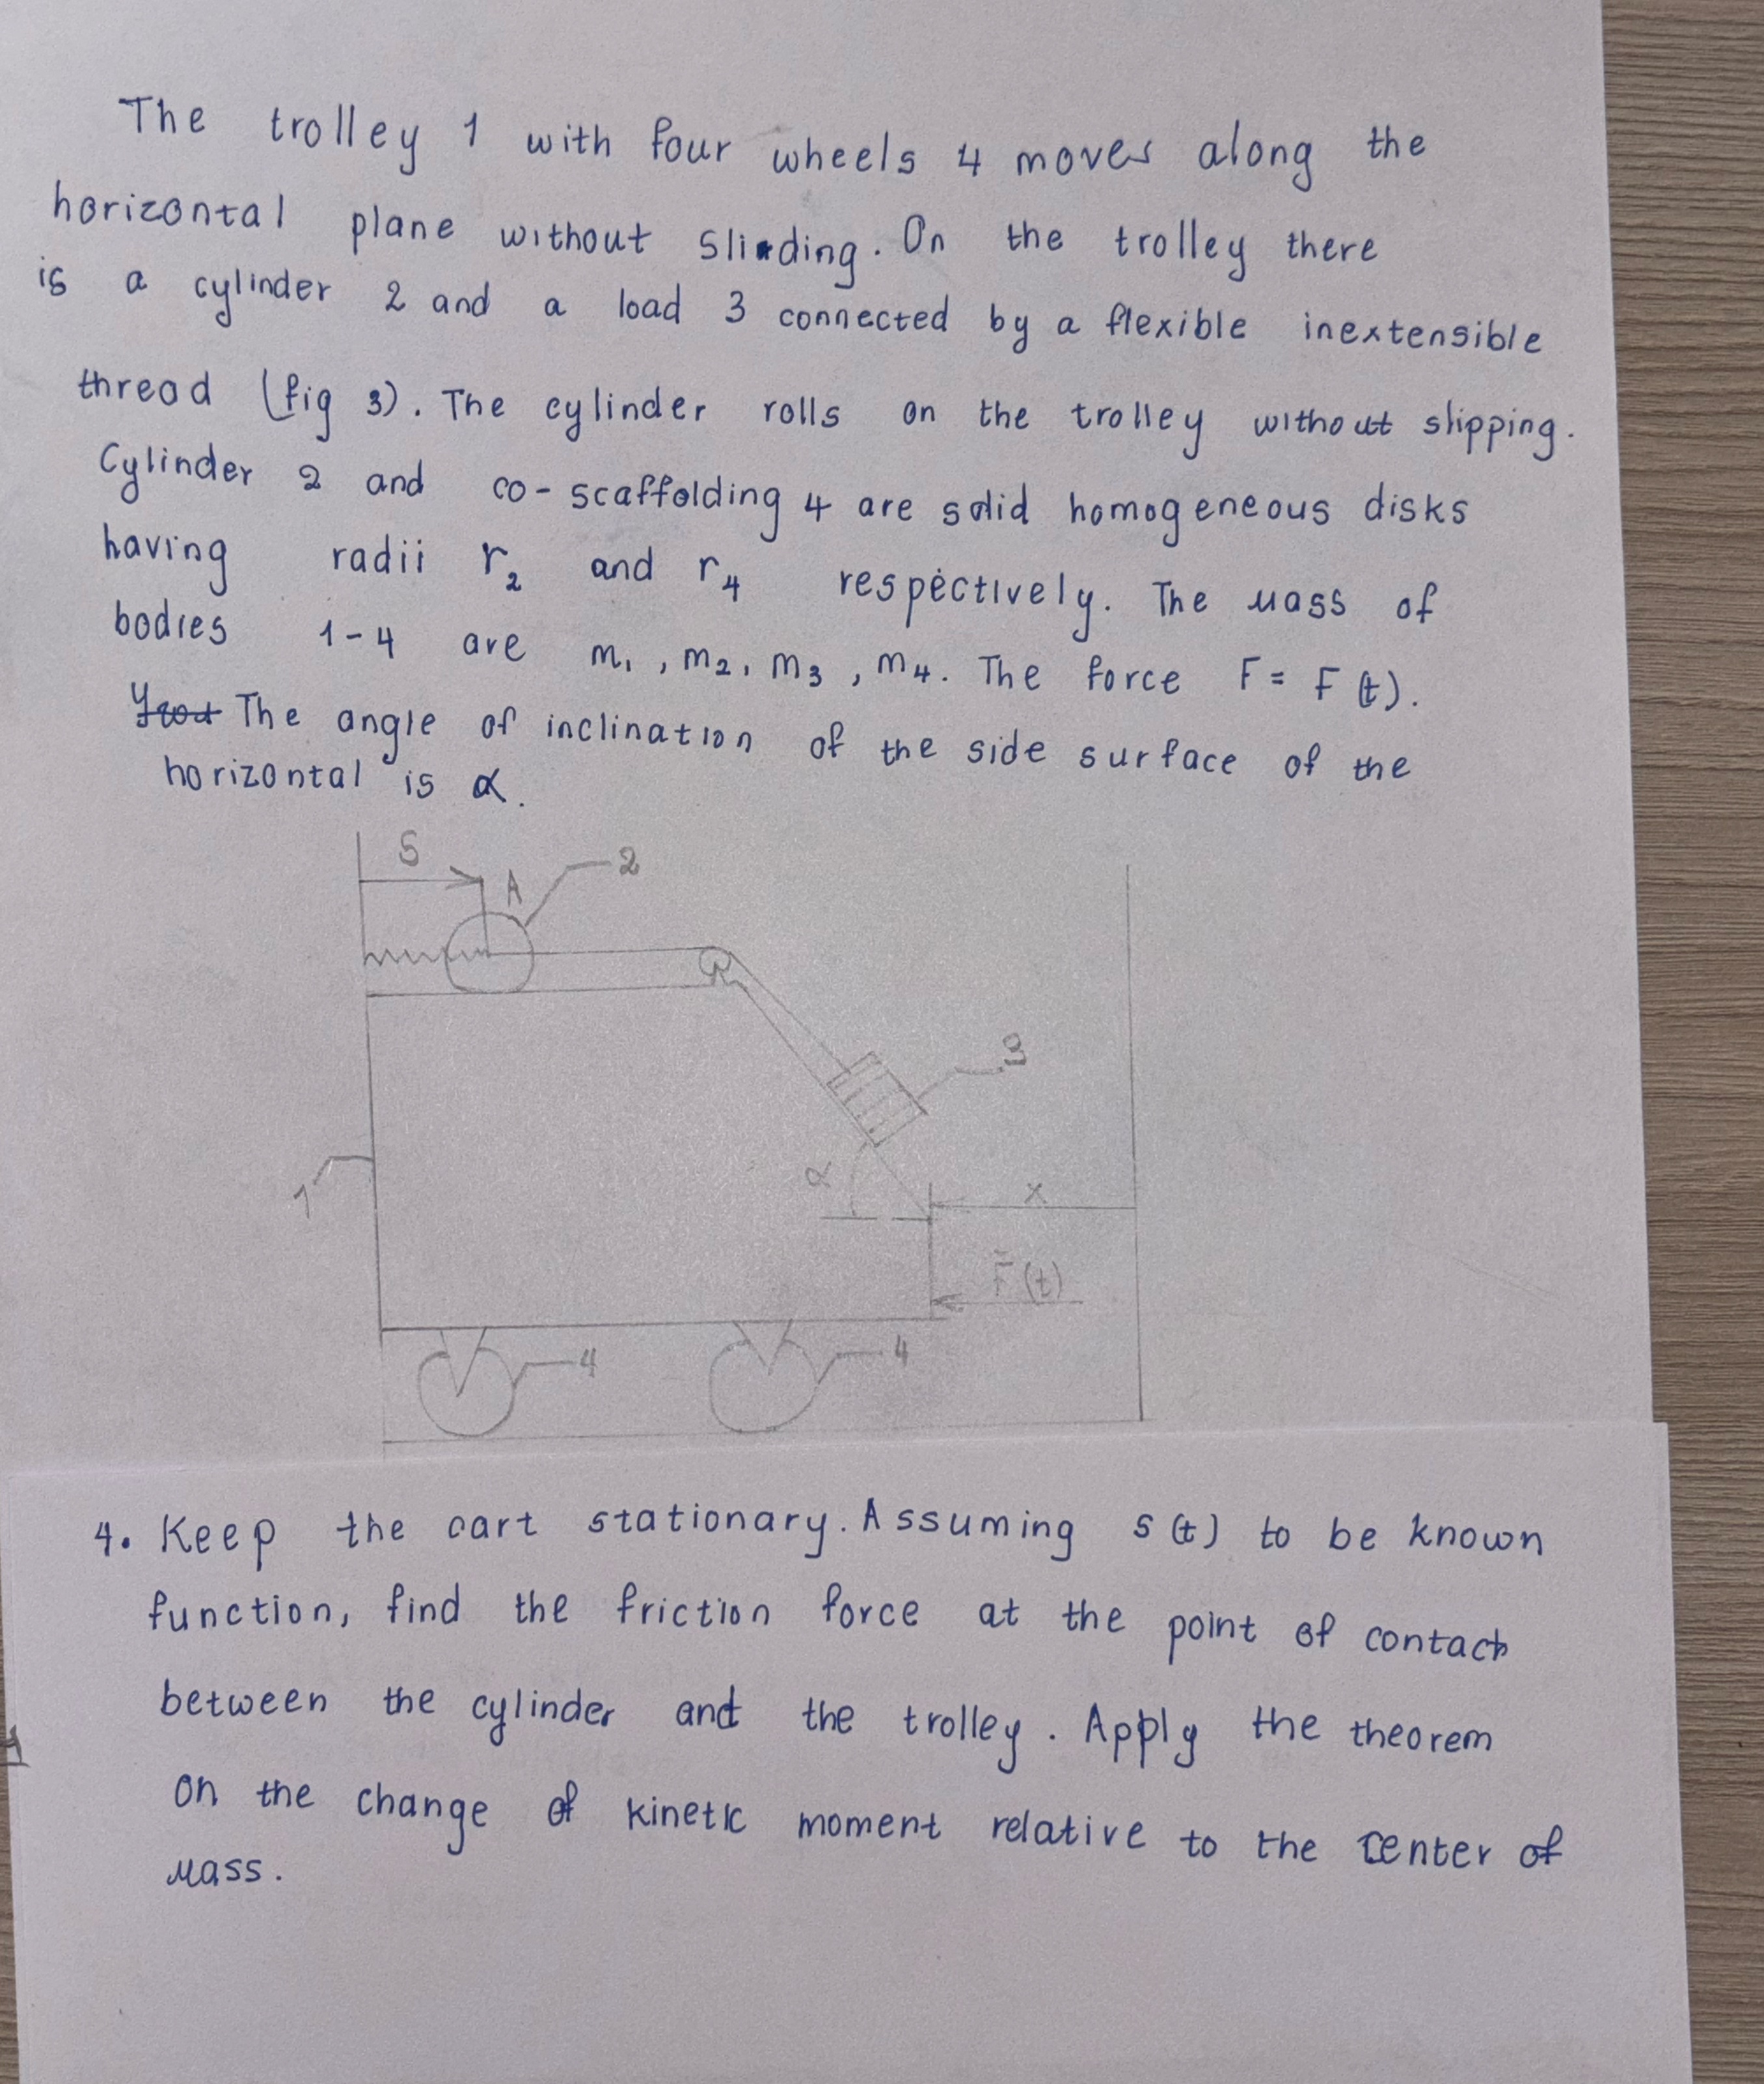 The trolley 1 with four wheels 4 moves along the
horizontal plane without sliding. On the trolley there
is a cylinder 2 and a load 3 connected by a flexible inextensible
thread (fig 3). The cylinder rolls on the trolley without slipping.
Cylinder 2 and co-scaffolding 4 are solid homogeneous disks
having radii r₂ and r₄ respectively. The mass of
bodies 1-4 are m₁, m₂, m₃, m₄. The force F = F(t).
The angle of inclination of the side surface of the
horizontal is α.
S
A
2
3
α
x
1
F̄(t)
4
4
4. Keep the cart stationary. Assuming s(t) to be known
function, find the friction force at the point of contact
between the cylinder and the trolley. Apply the theorem
on the change of kinetic moment relative to the center of
mass.